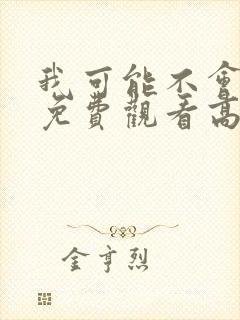 我可能不會
免費觀看高
金亨烈